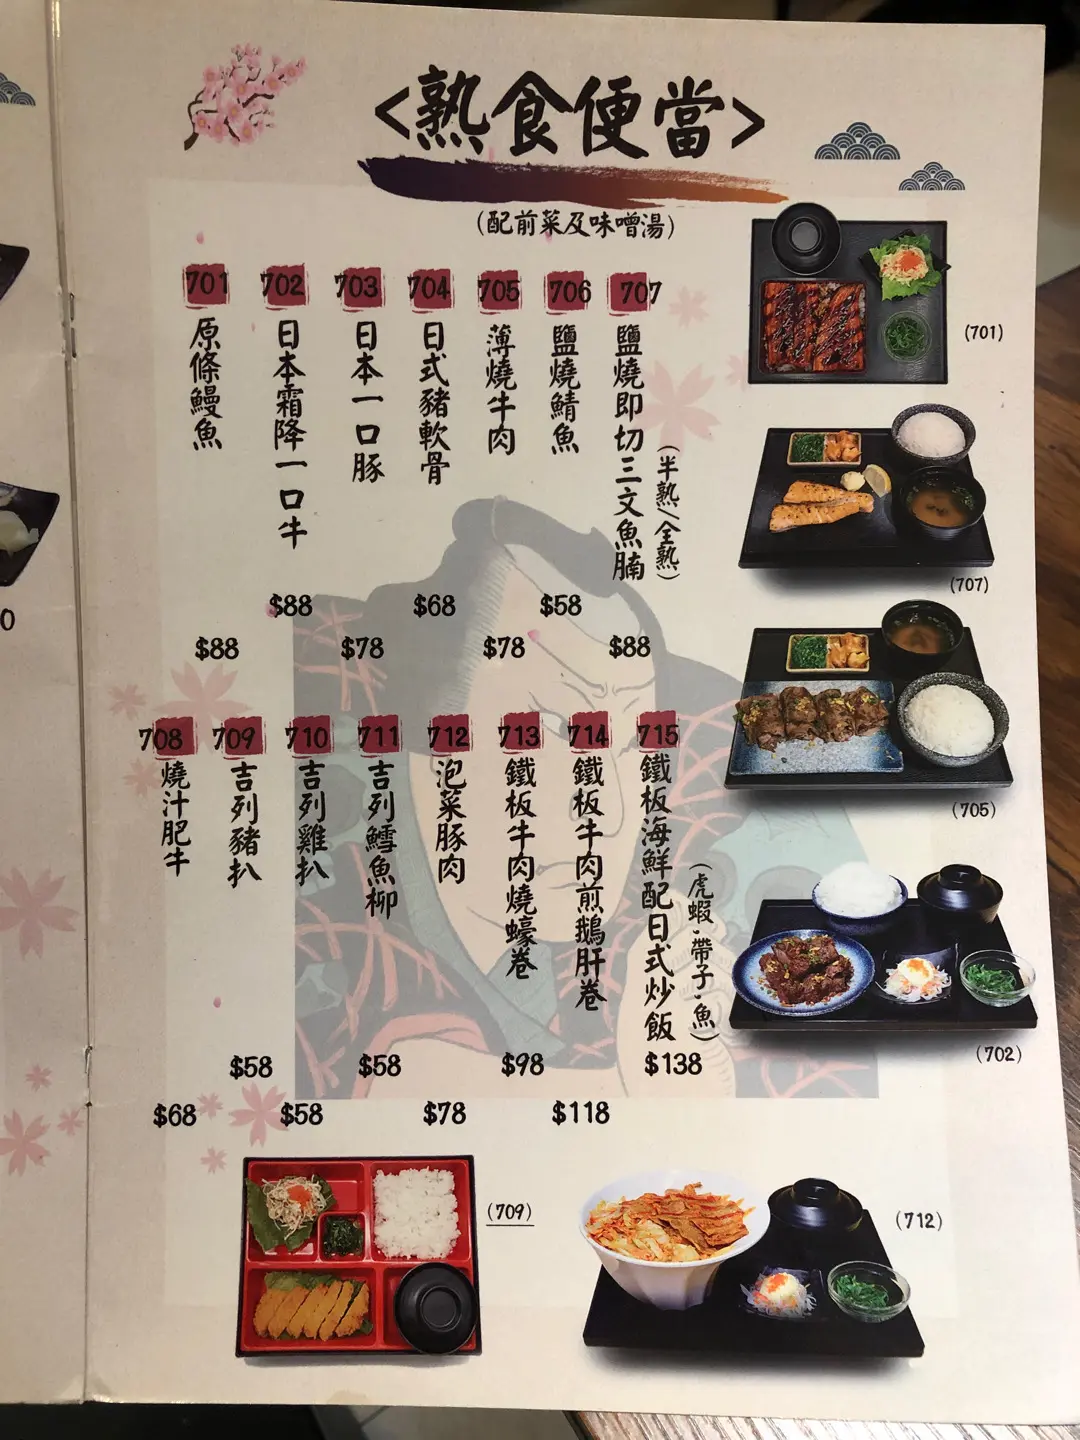 <熟食便當>
(配前菜及味噌湯)
701 原條鰻魚 $88
702 日本霜降一口牛 $88
703 日本一口豚 $78
704 日式豬軟骨 $68
705 薄燒牛肉 $78
706 鹽燒鯖魚 $58
707 鹽燒即切三文魚腩 (半熟/全熟) $88
708 燒汁肥牛 $68
709 吉列豬扒 $58
710 吉列雞扒 $58
711 吉列鱈魚柳 $58
712 泡菜豚肉 $78
713 鐵板牛肉燒蠔卷 $98
714 鐵板牛肉煎鵝肝卷 $118
715 鐵板海鮮配日式炒飯 (虎蝦·帶子·魚) $138
(701)
(707)
(705)
(702)
(709)
(712)
0